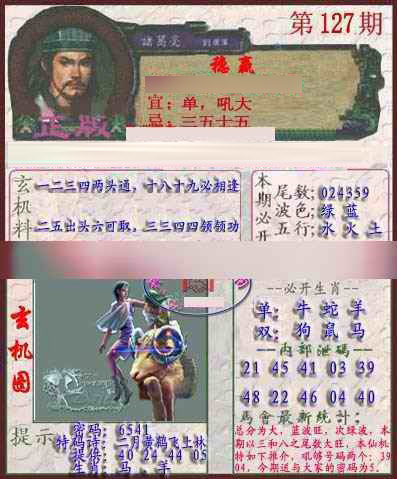 第127期
諸葛亮
稳赢
宜：单，吼大
忌：三五十五
正版
玄机料
一二三四两头通，十八十九必相逢
二五出头六可取，三三四四领领功
本期必开
尾数;024359
波色;绿 蓝
五行;水 火 土
必开生肖
单：牛 蛇 羊
双：狗 鼠 马
内部泄码
21 45 41 03 39
48 22 46 04 40
馬會最新統計：
总分为大，蓝波旺，次绿波，本
期以三和八之尾数大旺，本仙机
特如下推介，吼够号码两个：39
04，今期送与大家的密码为5.
玄机图
提示
密码：6541
特码诗：二月黄鹤飞上林
提供：40 24 44 05
生肖：马、羊